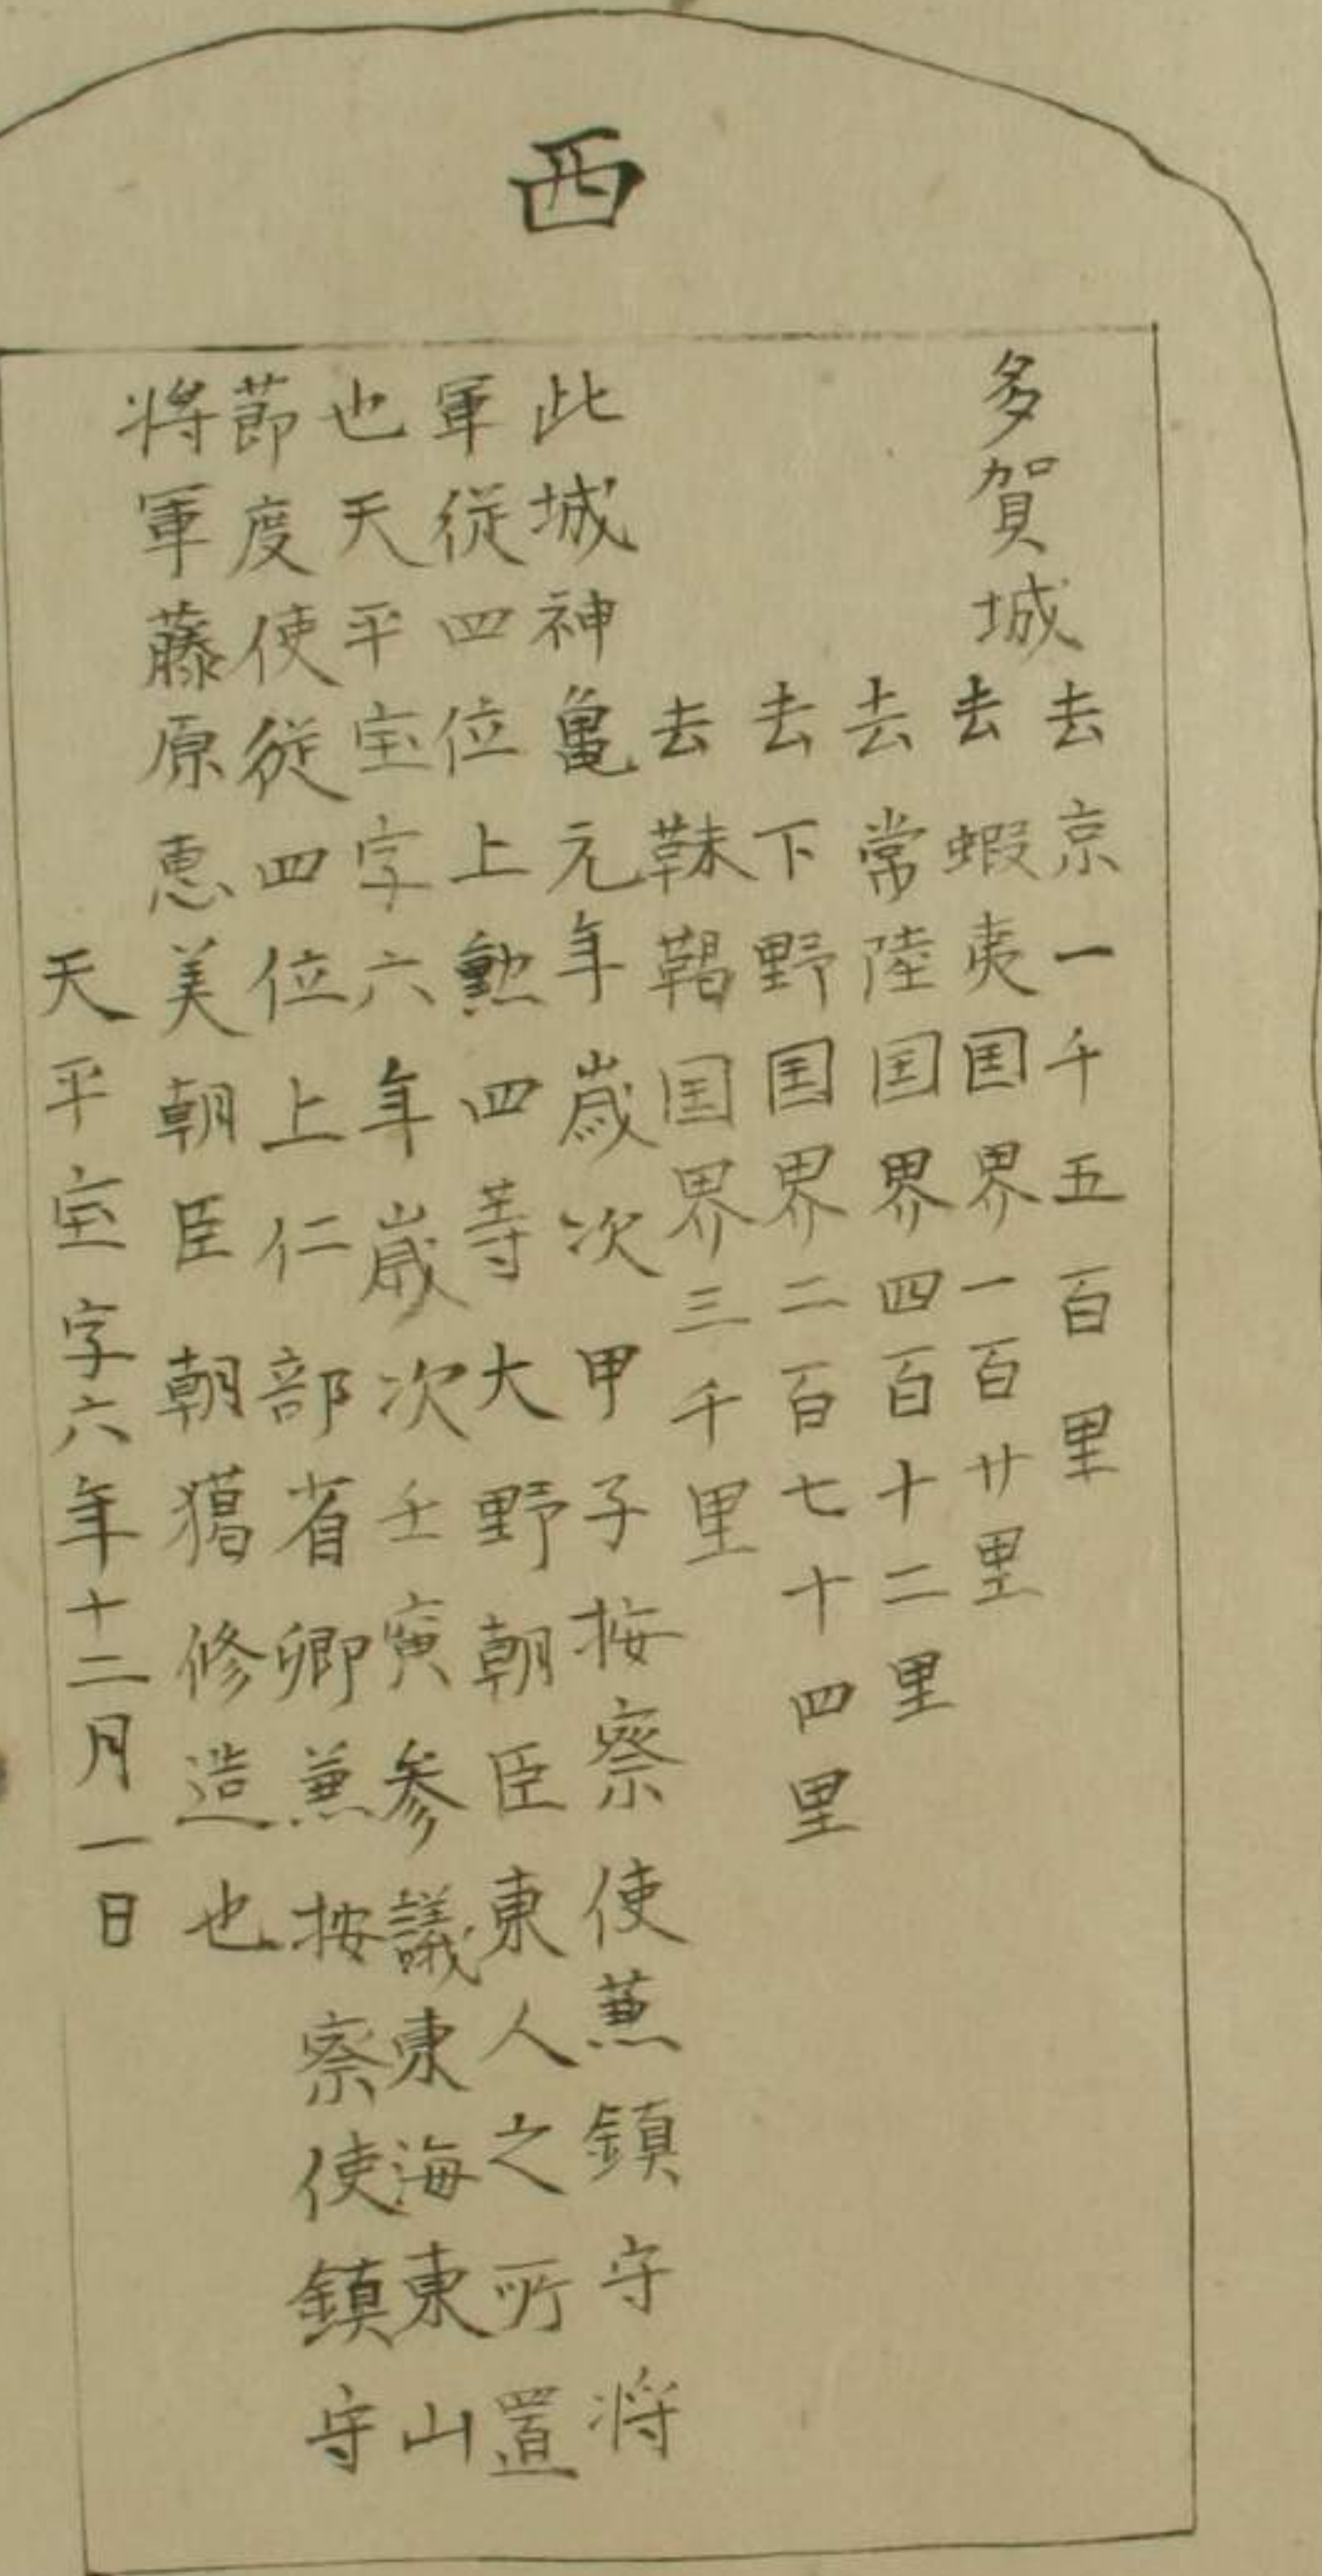 西
多賀城
去京一千五百里
去蝦夷国界一百廿里
去常陸国界四百十二里
去下野国界二百七十四里
去靺鞨国界三千里
此城神亀元年歳次甲子按察使兼鎮守将
軍従四位上勲四等大野朝臣東人之所置
也天平宝字六年歳次壬寅参議東海東山
節度使従四位上仁部省卿兼按察使鎮守
将軍藤原恵美朝臣朝獦修造也
天平宝字六年十二月一日